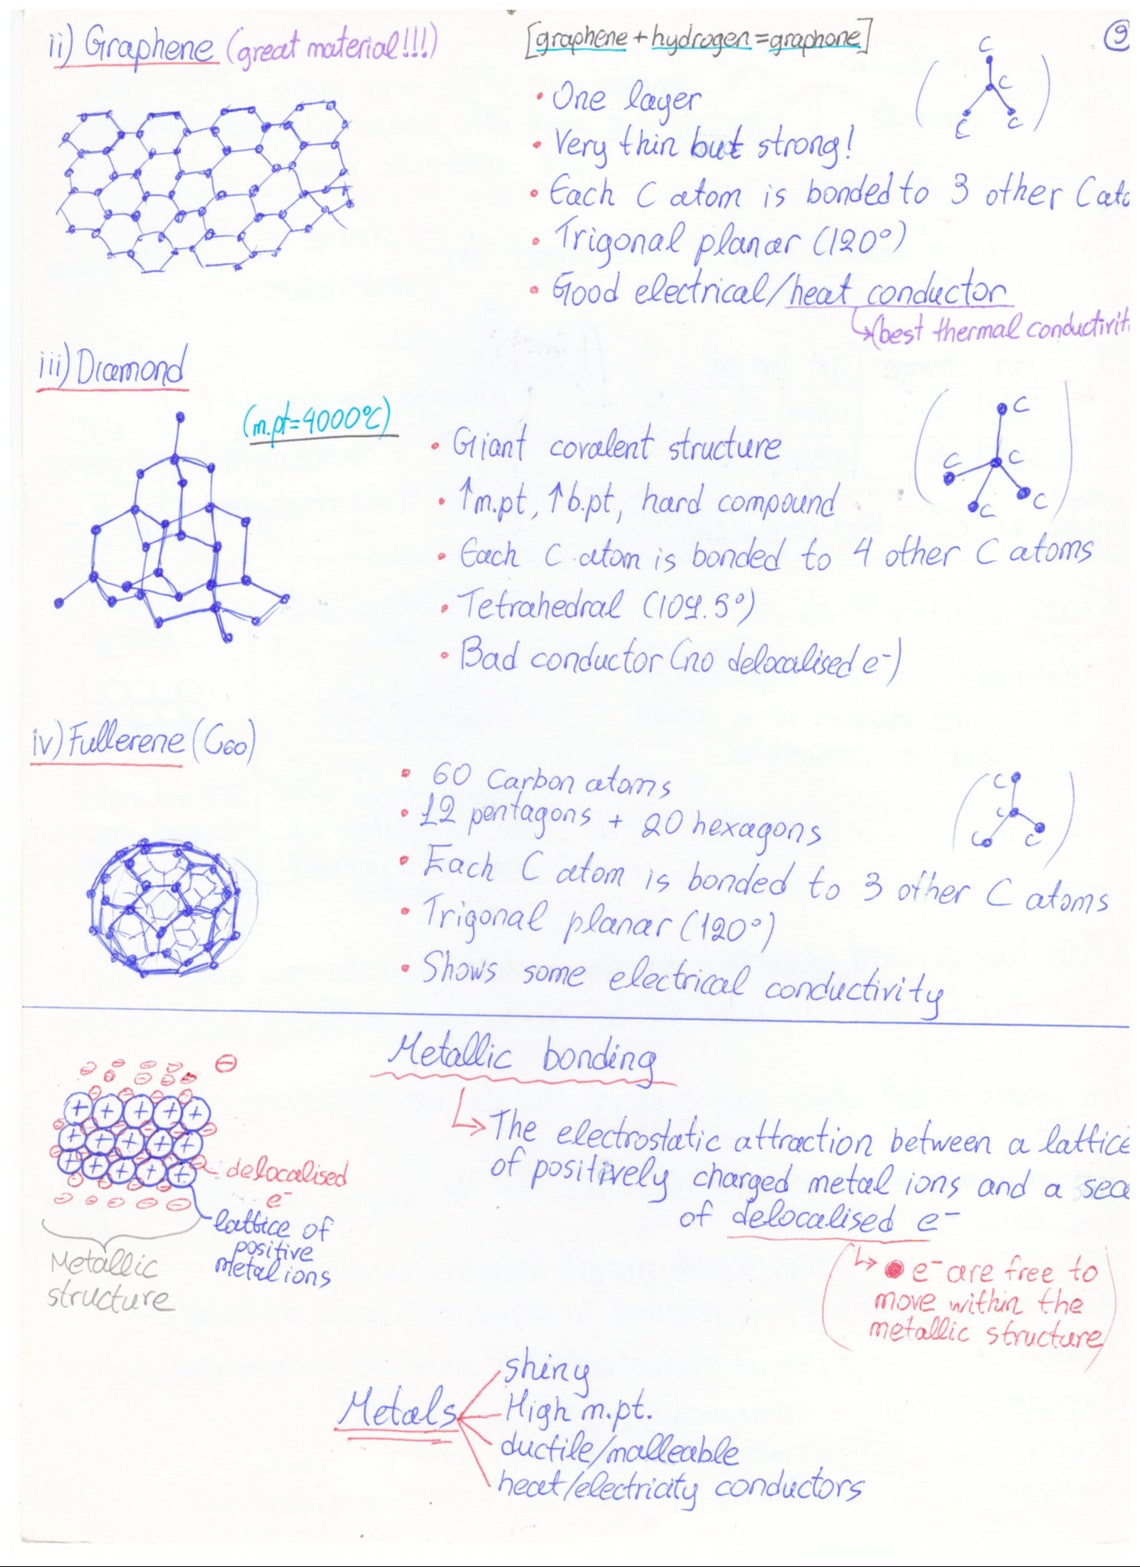 ii) Graphene (great material!!!)
[graphene + hydrogen = graphone]
9
C
C
C
C
• One layer
• Very thin but strong!
• Each C atom is bonded to 3 other C ato
• Trigonal planar (120°)
• Good electrical/heat conductor
↳(best thermal conductiviti
iii) Diamond
(m.pt=4000°C)
• Giant covalent structure
• ↑m.pt, ↑b.pt, hard compound
• Each C atom is bonded to 4 other C atoms
• Tetrahedral (109.5°)
• Bad conductor (no delocalised e⁻)
C
C
C
C
C
iv) Fullerene (C₆₀)
• 60 Carbon atoms
• 12 pentagons + 20 hexagons
• Each C atom is bonded to 3 other C atoms
• Trigonal planar (120°)
• Shows some electrical conductivity
C
C
C
C
Metallic bonding
↳ The electrostatic attraction between a lattice
of positively charged metal ions and a sea
of delocalised e⁻
(↳ • e⁻ are free to
move within the
metallic structure)
delocalised
e⁻
lattice of
positive
metal ions
Metallic
structure
Metals
shiny
High m.pt.
ductile/malleable
heat/electricity conductors